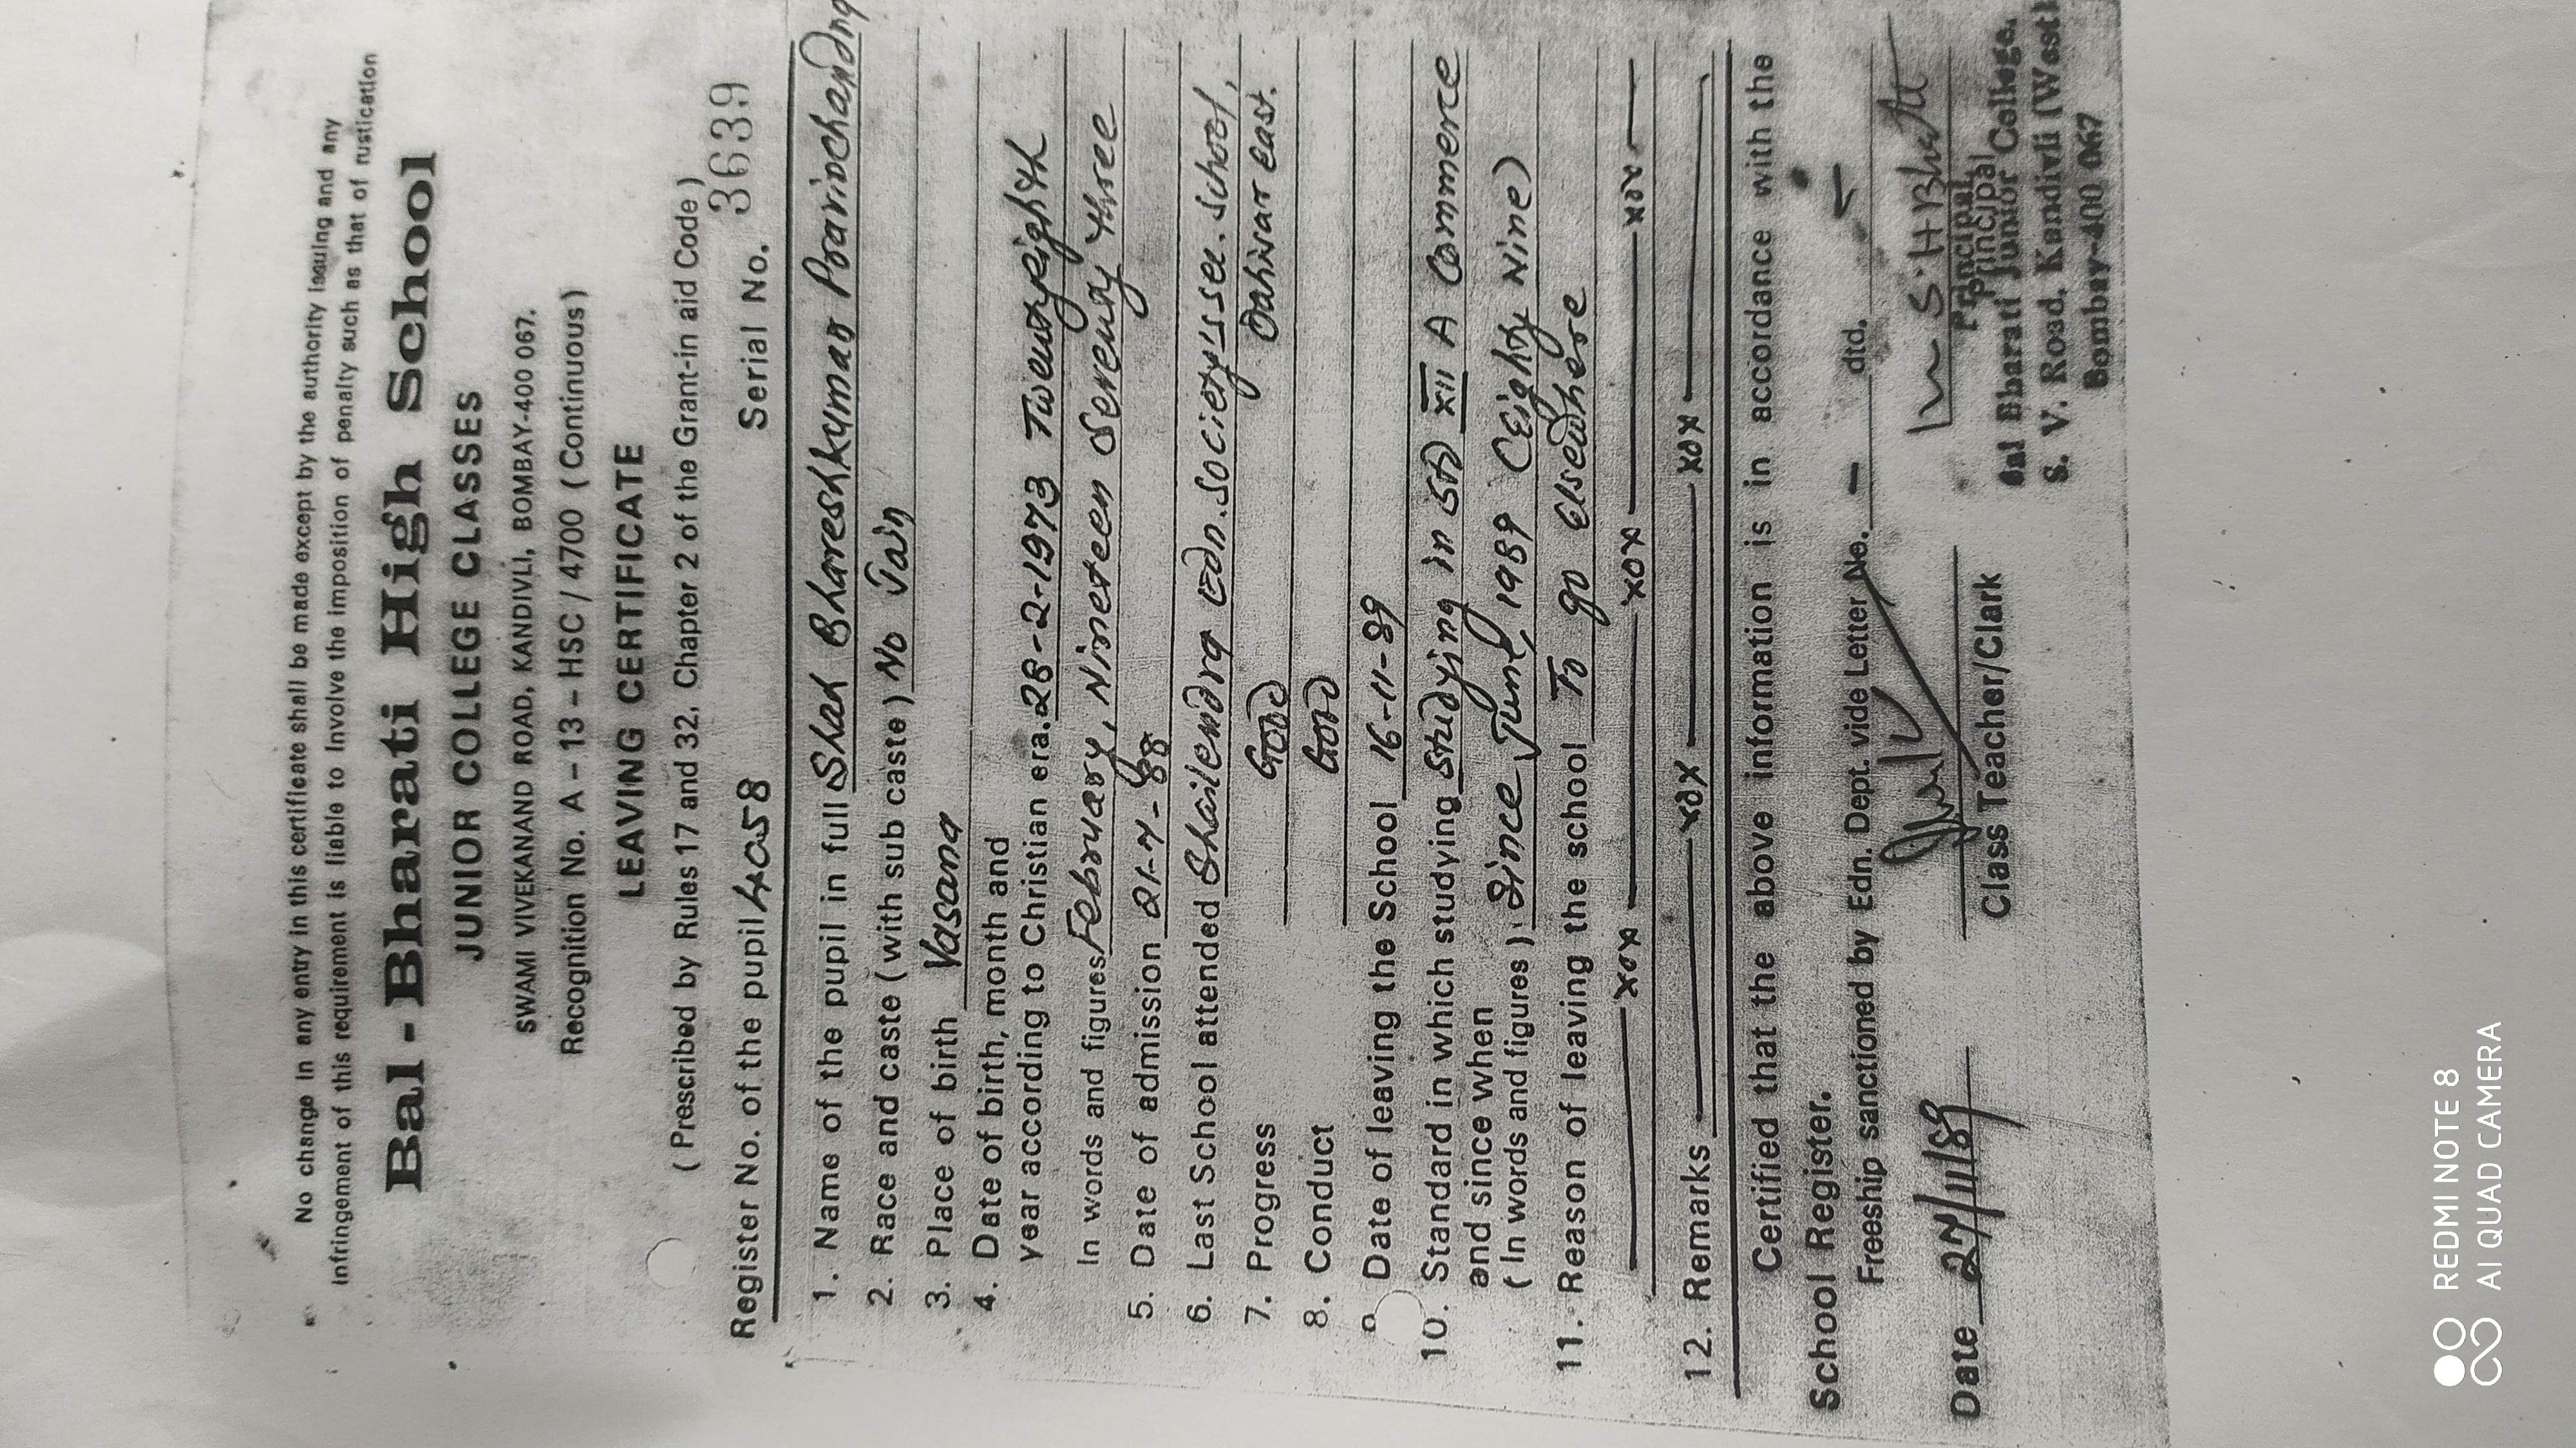 No change in any entry in this certificate shall be made except by the authority issuing and any
infringement of this requirement is liable to Involve the imposition of penalty such as that of rustication
Bal-Bharati High School
JUNIOR COLLEGE CLASSES
SWAMI VIVEKANAND ROAD, KANDIVLI, BOMBAY-400 067.
Recognition No. A-13-HSC/4700 (Continuous)
LEAVING CERTIFICATE
(Prescribed by Rules 17 and 32, Chapter 2 of the Grant-in aid Code)
Register No. of the pupil 4058 Serial No. 3639
1. Name of the pupil in full Shah Bhareshkumar Pravinchandra
2. Race and caste (with sub caste) No Jain
3. Place of birth Vasana
4. Date of birth, month and
year according to Christian era. 28-2-1973 Twentyeighth
In words and figures February, Nineteen Seventy three
5. Date of admission 21-7-88
6. Last School attended Shailendra Edn. Society's sec. school,
Dahisar east.
7. Progress Good
8. Conduct Good
9. Date of leaving the School 16-11-89
10. Standard in which studying Studying in STD XII A Commerce
and since when
(In words and figures) Since June, 1989 (Eighty Nine)
11. Reason of leaving the school To go Elsewhere
xox xox xox
12. Remarks xox xox
Certified that the above information is in accordance with the
School Register.
Freeship sanctioned by Edn. Dept. vide Letter No. — dtd. —
Date 27/11/89
Class Teacher/Clark
S.H.Bhatt
Principal,
Principal
Bal Bharati Junior College,
S. V. Road, Kandivli (West)
Bombay-400 067
REDMI NOTE 8
AI QUAD CAMERA